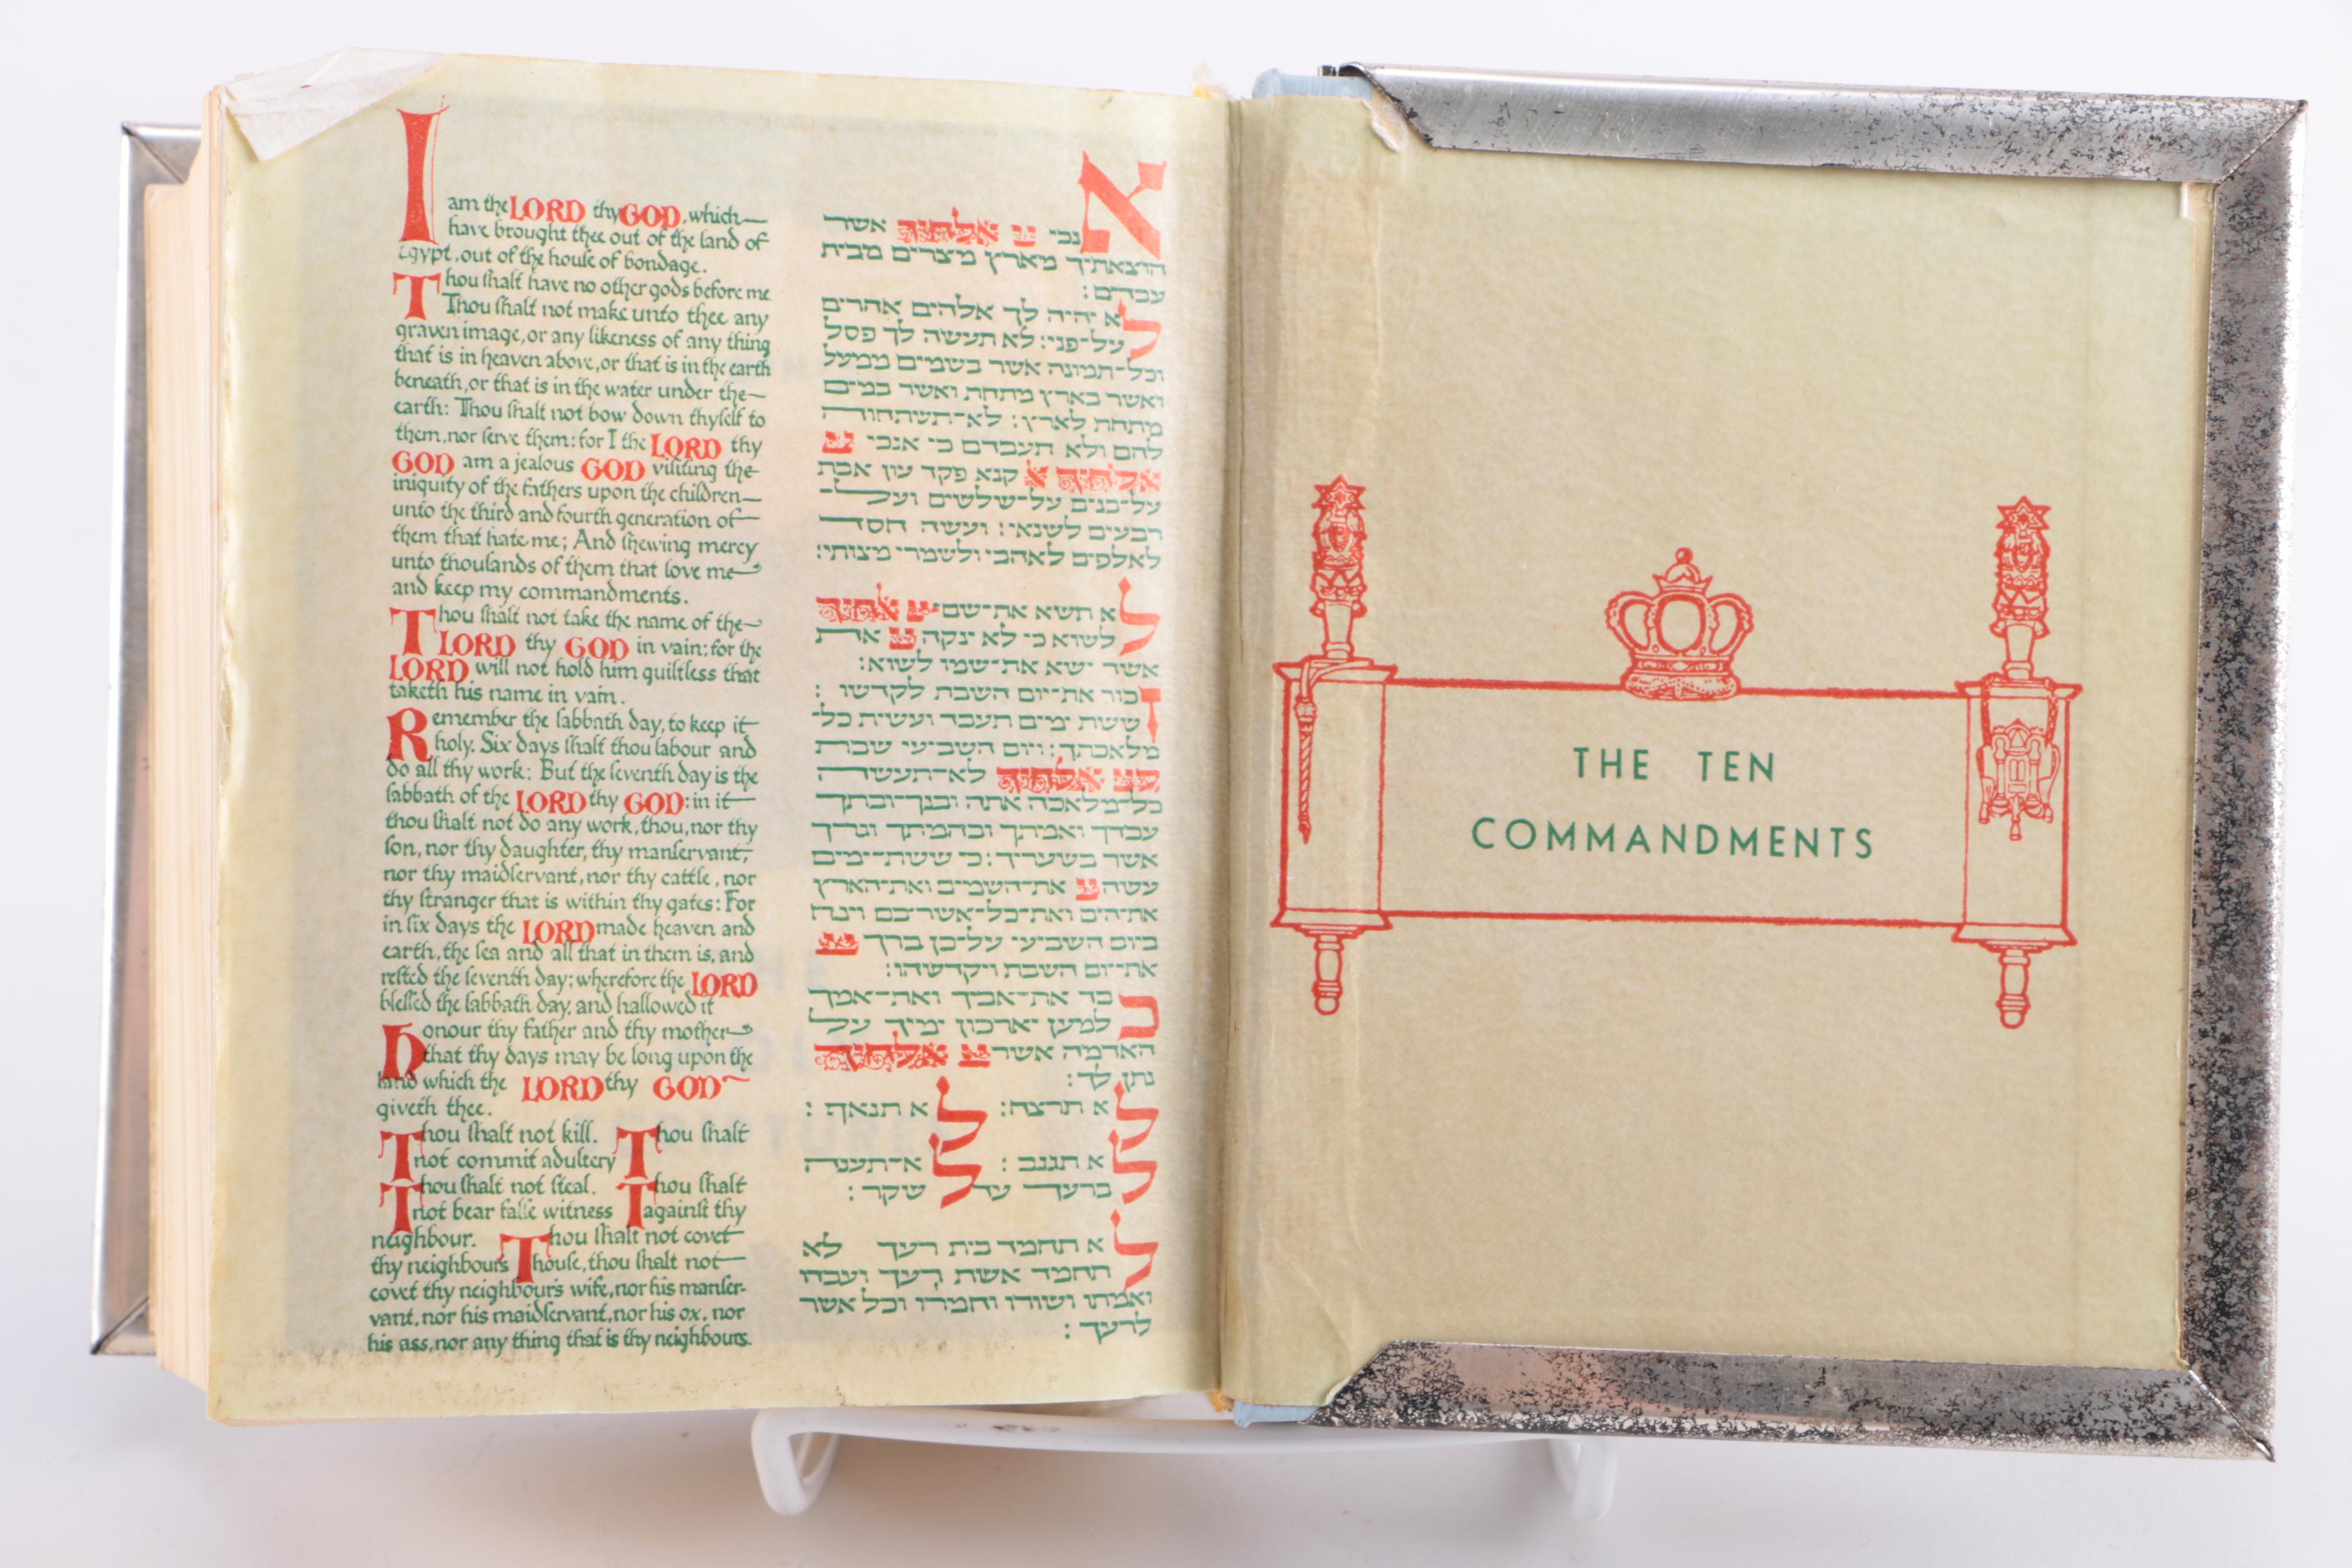 I am the LORD thy GOD, which
have brought thee out of the land of
Egypt, out of the house of bondage.
Thou shalt have no other gods before me
Thou shalt not make unto thee any
graven image, or any likeness of any thing
that is in heaven above, or that is in the earth
beneath, or that is in the water under the
earth: Thou shalt not bow down thyself to
them, nor serve them: for I the LORD thy
GOD am a jealous GOD visiting the
iniquity of the fathers upon the children
unto the third and fourth generation of
them that hate me; And shewing mercy
unto thousands of them that love me
and keep my commandments.
Thou shalt not take the name of the
LORD thy GOD in vain: for the
LORD will not hold him guiltless that
taketh his name in vain.
Remember the sabbath day, to keep it
holy. Six days shalt thou labour and
do all thy work: But the seventh day is the
sabbath of the LORD thy GOD: in it
thou shalt not do any work, thou, nor thy
son, nor thy daughter, thy manservant,
nor thy maidservant, nor thy cattle, nor
thy stranger that is within thy gates: For
in six days the LORD made heaven and
earth, the sea and all that in them is, and
rested the seventh day: wherefore the LORD
blessed the sabbath day, and hallowed it
Honour thy father and thy mother
that thy days may be long upon the
land which the LORD thy GOD
giveth thee.
Thou shalt not kill. Thou shalt
not commit adultery
Thou shalt not steal. Thou shalt
not bear false witness against thy
neighbour. Thou shalt not covet
thy neighbours house, thou shalt not
covet thy neighbours wife, nor his manser-
vant, nor his maidservant, nor his ox, nor
his ass, nor any thing that is thy neighbours.
אנכי אלהיך אשר
הוצאתיך מארץ מצרים מבית
עבדים:
לא יהיה לך אלהים אחרים
על־פני: לא תעשה לך פסל
וכל־תמונה אשר בשמים ממעל
ואשר בארץ מתחת ואשר במים
מתחת לארץ: לא־תשתחוה
להם ולא תעבדם כי אנכי
אלהיך קנא פקד עון אבת
על־בנים על־שלשים ועל־
רבעים לשנאי: ועשה חסד
לאלפים לאהבי ולשמרי מצותי:
לא תשא את־שם אלהיך
לשוא כי לא ינקה את
אשר ישא את־שמו לשוא:
זכור את־יום השבת לקדשו :
ששת ימים תעבד ועשית כל־
מלאכתך: ויום השביעי שבת
אלהיך לא־תעשה
כל־מלאכה אתה ובנך־ובתך
עבדך ואמתך ובהמתך וגרך
אשר בשעריך: כי ששת־ימים
עשה את־השמים ואת־הארץ
את־הים ואת־כל־אשר־בם וינח
ביום השביעי על־כן ברך
את־יום השבת ויקדשהו:
כבד את־אביך ואת־אמך
למען יארכון ימיך על
האדמה אשר אלהיך
נתן לך:
לא תרצח: לא תנאף:
לא תגנב: לא־תענה
ברעך עד שקר:
לא תחמד בית רעך לא
תחמד אשת רעך ועבדו
ואמתו ושורו וחמרו וכל אשר
לרעך:
THE TEN
COMMANDMENTS